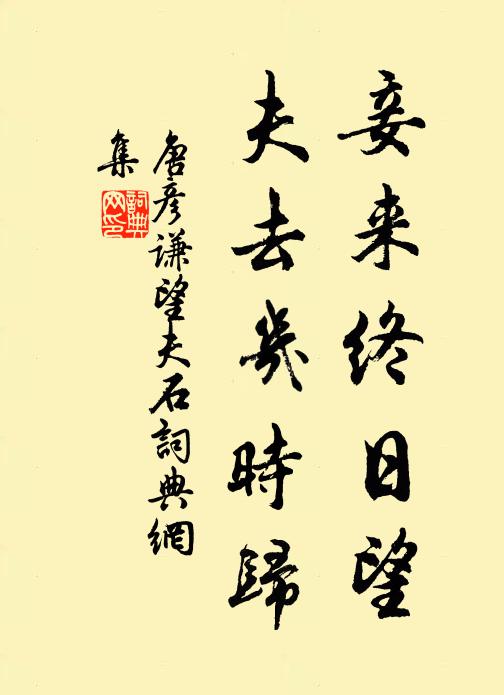 妾来终日望
夫去幾時歸
唐彦谦望夫石詞典網
集
詞典网印